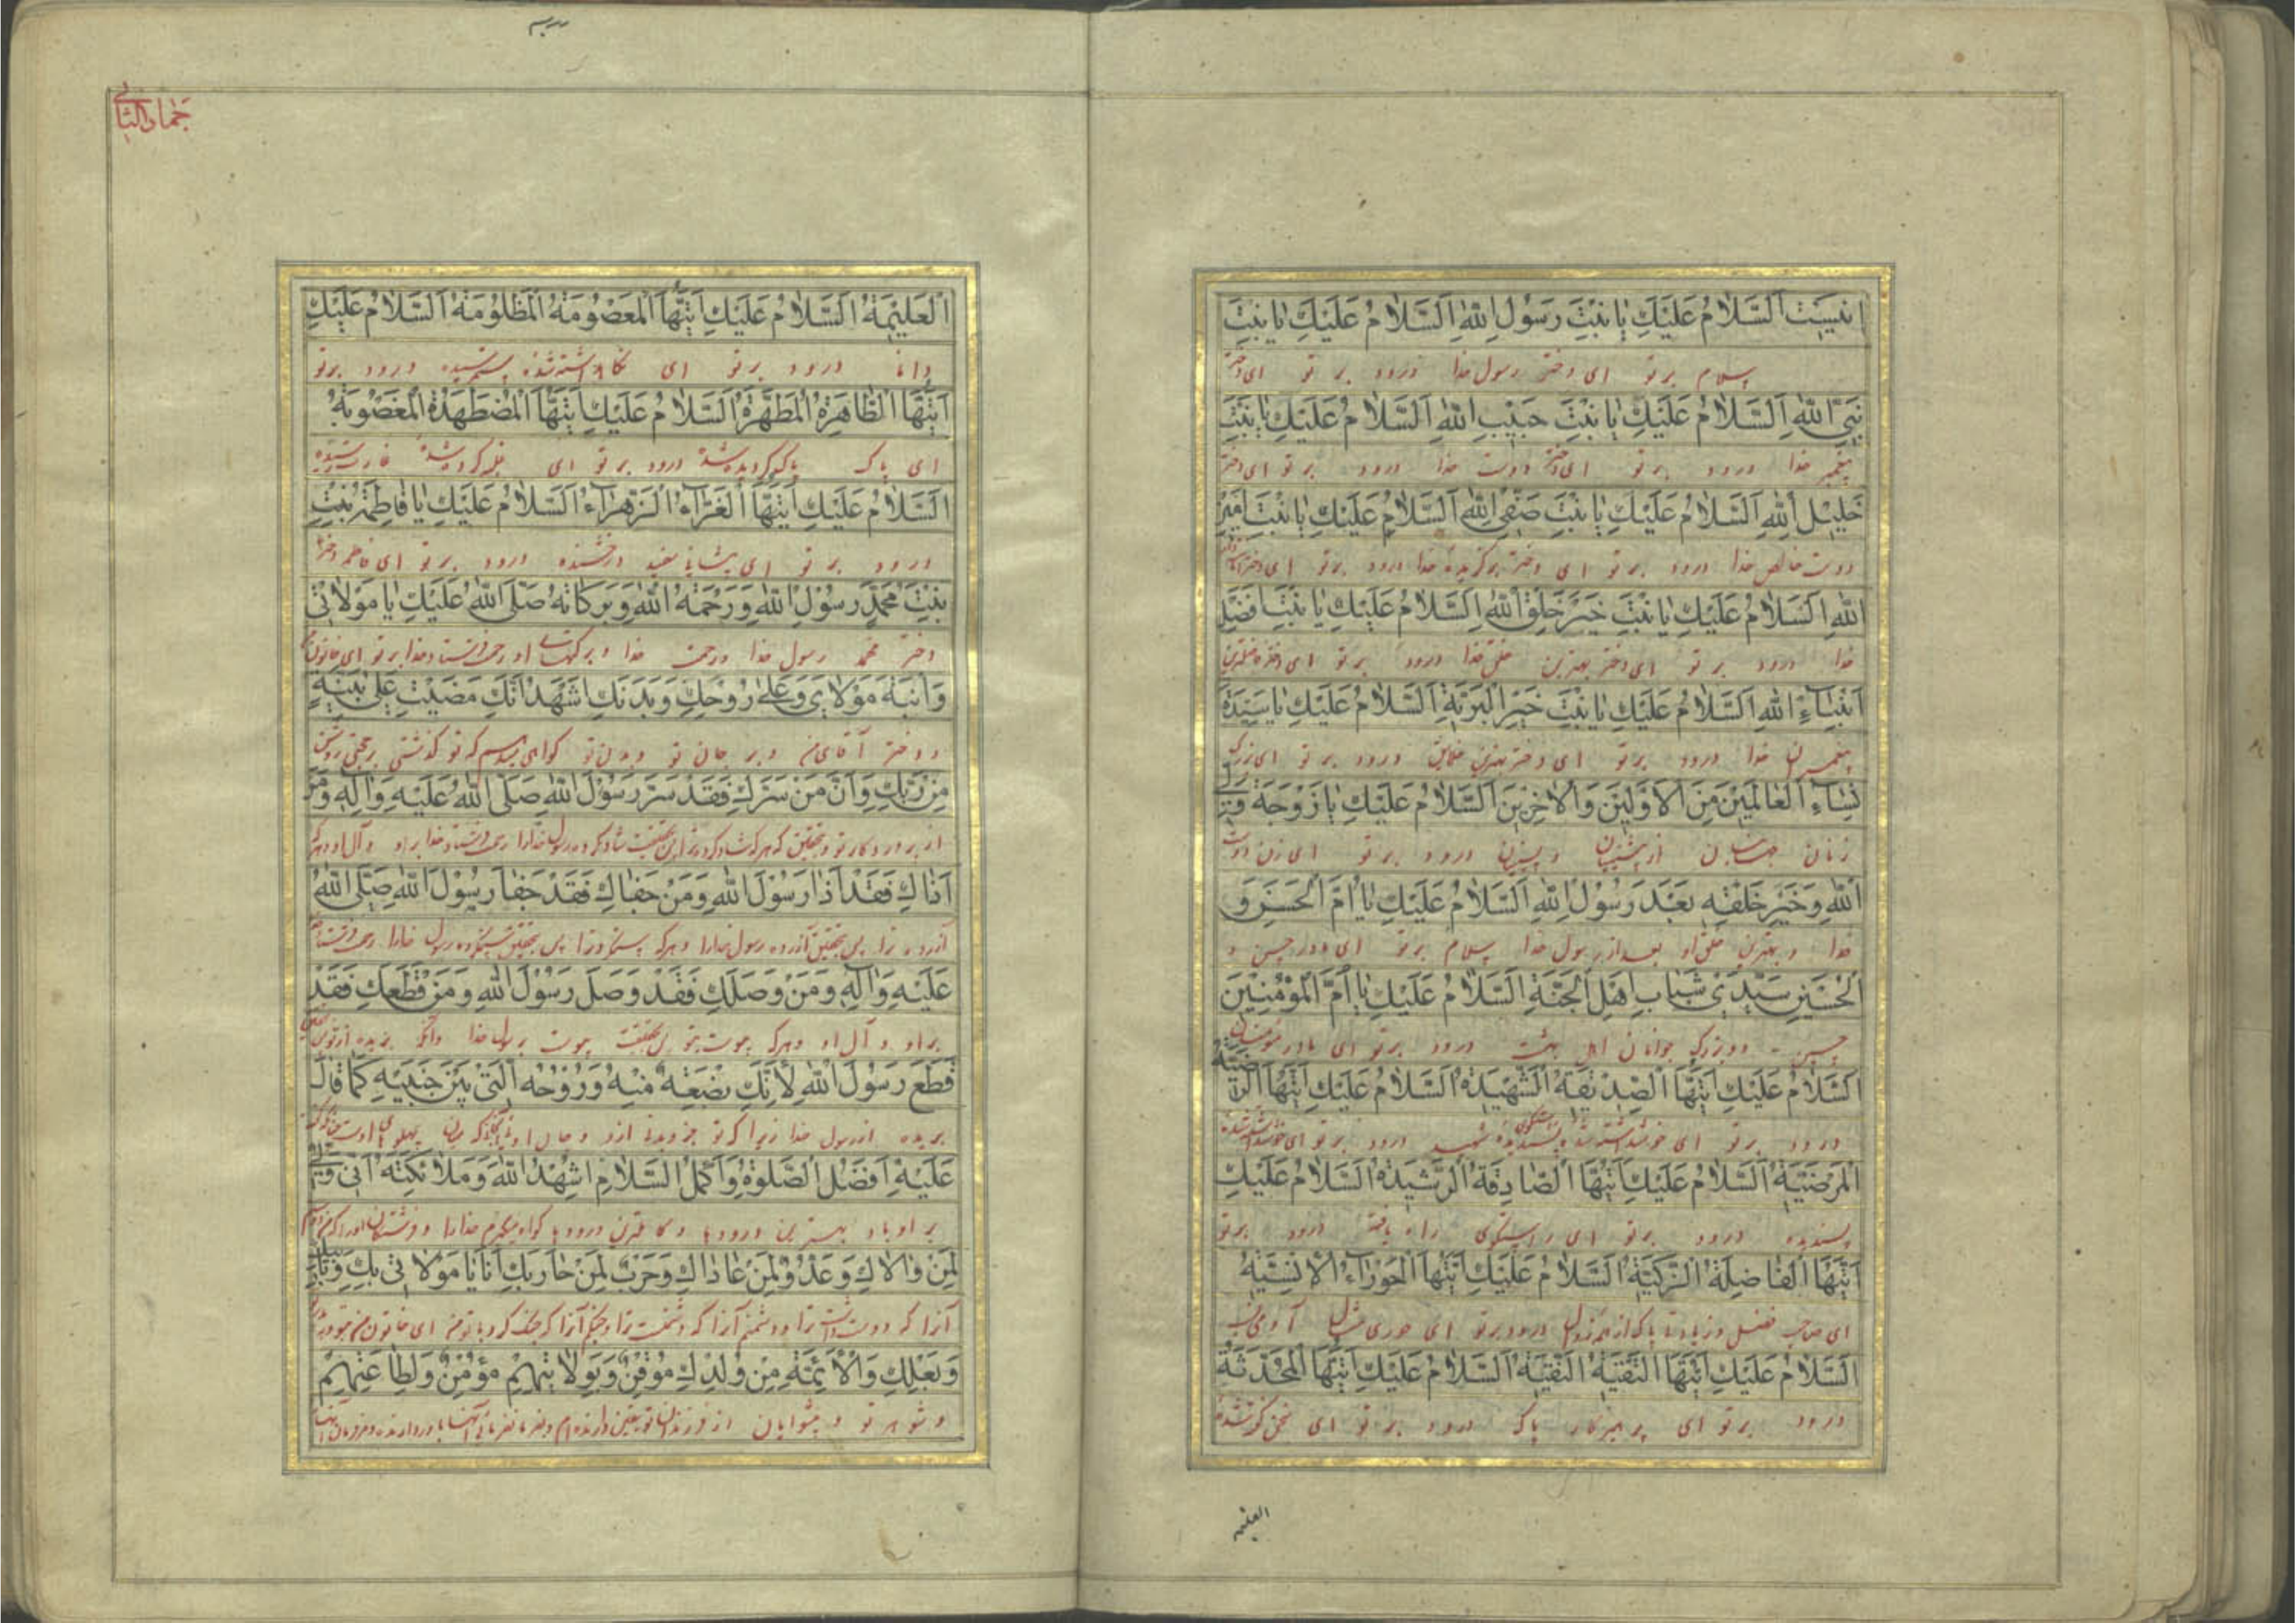 اینست اَلسَّلامُ عَلَیْكِ یا بِنْتَ رَسُولِ اللهِ اَلسَّلامُ عَلَیْكِ یا بِنْتَ
سلام بر تو ای دختر رسول خدا درود بر تو ای دختر
نَبِیِّ اللهِ اَلسَّلامُ عَلَیْكِ یا بِنْتَ حَبیبِ اللهِ اَلسَّلامُ عَلَیْكِ یا بِنْتَ
پیغمبر خدا درود بر تو ای دختر دوست خدا درود بر تو ای دختر
خَلیلِ اللهِ اَلسَّلامُ عَلَیْكِ یا بِنْتَ صَفِیِّ اللهِ اَلسَّلامُ عَلَیْكِ یا بِنْتَ اَمینِ
دوست خالص خدا درود بر تو ای دختر برگزیده خدا درود بر تو ای دختر
اللهِ اَلسَّلامُ عَلَیْكِ یا بِنْتَ خَیْرِ خَلْقِ اللهِ اَلسَّلامُ عَلَیْكِ یا بِنْتَ اَفْضَلِ
خدا درود بر تو ای دختر بهترین خلق خدا درود بر تو ای دختر
اَنْبِیاءِ اللهِ اَلسَّلامُ عَلَیْكِ یا بِنْتَ خَیْرِ الْبَرِیَّةِ اَلسَّلامُ عَلَیْكِ یا سَیِّدَةَ
پیغمبران خدا درود بر تو ای دختر بهترین خلایق درود بر تو ای بزرگ
نِساءِ الْعالَمینَ مِنَ الْاَوَّلینَ وَالْاخِرینَ اَلسَّلامُ عَلَیْكِ یا زَوْجَةَ وَلِیِّ
زنان جهانیان از پیشینیان و پسینیان درود بر تو ای زن دوست
اللهِ وَخَیْرِ خَلْقِهِ بَعْدَ رَسُولِ اللهِ اَلسَّلامُ عَلَیْكِ یا اُمَّ الْحَسَنِ وَ
خدا و بهترین خلق او بعد از رسول خدا سلام بر تو ای مادر حسن و
الْحُسَیْنِ سَیِّدَیْ شَبابِ اَهْلِ الْجَنَّةِ اَلسَّلامُ عَلَیْكِ یا اُمَّ الْمُؤْمِنینَ
حسین دو بزرگ جوانان اهل بهشت درود بر تو ای مادر مؤمنان
اَلسَّلامُ عَلَیْكِ اَیَّتُهَا الصِّدّیقَةُ الشَّهیدَةُ اَلسَّلامُ عَلَیْكِ اَیَّتُهَا الرَّضِیَّةُ
درود بر تو ای شهید درود بر تو ای
الْمَرْضِیَّةُ اَلسَّلامُ عَلَیْكِ اَیَّتُهَا الصّادِقَةُ الرَّشیدَةُ اَلسَّلامُ عَلَیْكِ
پسندیده درود بر تو ای راستگوی راه یافته درود بر تو
اَیَّتُهَا الْفاضِلَةُ الزَّکِیَّةُ اَلسَّلامُ عَلَیْكِ اَیَّتُهَا الْحَوْراءُ الْاِنْسِیَّةُ
ای صاحب فضل و زیادتی پاک درود بر تو ای حوری
اَلسَّلامُ عَلَیْكِ اَیَّتُهَا التَّقِیَّةُ النَّقِیَّةُ اَلسَّلامُ عَلَیْكِ اَیَّتُهَا الْمُحَدَّثَةُ
درود بر تو ای پرهیزکار پاک درود بر تو ای سخن کرده شده
العلیمه
جمادی الثانی
الْعَلیمَةُ اَلسَّلامُ عَلَیْكِ اَیَّتُهَا الْمَعْصُومَةُ الْمَظْلُومَةُ اَلسَّلامُ عَلَیْكِ
دانا درود بر تو ای نگاه داشته شده ستم رسیده درود بر تو
اَیَّتُهَا الطّاهِرَةُ الْمُطَهَّرَةُ اَلسَّلامُ عَلَیْكِ اَیَّتُهَا الْمُضْطَهَدَةُ الْمَغْصُوبَةُ
ای پاک پاک گردیده شده درود بر تو ای
اَلسَّلامُ عَلَیْكِ اَیَّتُهَا الْغَرّاءُ الزَّهْراءُ اَلسَّلامُ عَلَیْكِ یا فاطِمَةُ بِنْتِ
درود بر تو ای پیشانی سفید درخشنده درود بر تو ای فاطمه دختر
بِنْتَ مُحَمَّدٍ رَسُولِ اللهِ وَرَحْمَةُ اللهِ وَبَرَکاتُهُ صَلَّی اللهُ عَلَیْكِ یا مَوْلاتی
دختر محمد رسول خدا و رحمت خدا و برکتهای او رحمت فرستاد خدا بر تو ای خاتون
وَابْنَةَ مَوْلایَ وَعَلی رُوحِكِ وَبَدَنِكِ اَشْهَدُ اَنَّكِ مَضَیْتِ عَلی بَیِّنَةٍ
و دختر آقای من و بر جان تو و بدن تو گواهی میدهم که تو گذشتی بر حجتی روشن
مِنْ رَبِّكِ وَاَنَّ مَنْ سَرَّكِ فَقَدْ سَرَّ رَسُولَ اللهِ صَلَّی اللهُ عَلَیْهِ وَالِهِ وَمَنْ
از پروردگار تو و بتحقیق که هر که شاد کرد ترا پس بتحقیقت شاد کرده رسول خدا را رحمت فرستاد خدا بر او و آل او و هر که
اذاكِ فَقَدْ اَذا رَسُولَ اللهِ وَمَنْ جَفاكِ فَقَدْ جَفا رَسُولَ اللهِ صَلَّی اللهُ
آزرده ترا پس بتحقیق آزرده رسول خدا را و هر که ستم کرد ترا پس بتحقیق ستم کرده رسول خدا را
عَلَیْهِ وَالِهِ وَمَنْ وَصَلَكِ فَقَدْ وَصَلَ رَسُولَ اللهِ وَمَنْ قَطَعَكِ فَقَدْ
بر او و آل او و هر که پیوست بتو پس بحقیقت پیوست برسول خدا
قَطَعَ رَسُولَ اللهِ لِاَنَّكِ بِضْعَةٌ مِنْهُ وَرُوحُهُ الَّتی بَیْنَ جَنْبَیْهِ کَما قالَ
بریده از رسول خدا زیرا که تو جزو بدنی ازو و جان او
عَلَیْهِ اَفْضَلُ الصَّلوةِ وَاَکْمَلُ السَّلامِ اُشْهِدُ اللهَ وَمَلائِکَتَهُ اَنّی وَلِیٌّ
بر او باد بهترین درودها و کاملترین درودها گواه میگیرم خدا را و فرشتگان او را
لِمَنْ والاكِ وَعَدُوٌّ لِمَنْ عاداكِ وَحَرْبٌ لِمَنْ حارَبَكِ اَنَا یا مَوْلاتی بِكِ وَبِاَبیكِ
آنرا که دوست داشت ترا و دشمنم آنرا که دشمنست ترا و جنگم آنرا که جنگ کرد با تو من ای خاتون من
وَبَعْلِكِ وَالْاَئِمَّةِ مِنْ وُلْدِكِ مُوقِنٌ وَبِوِلایَتِهِمْ مُؤْمِنٌ وَلِطاعَتِهِمْ
و شوهر تو و پیشوایان از فرزندان تو یقین دارنده‌ام